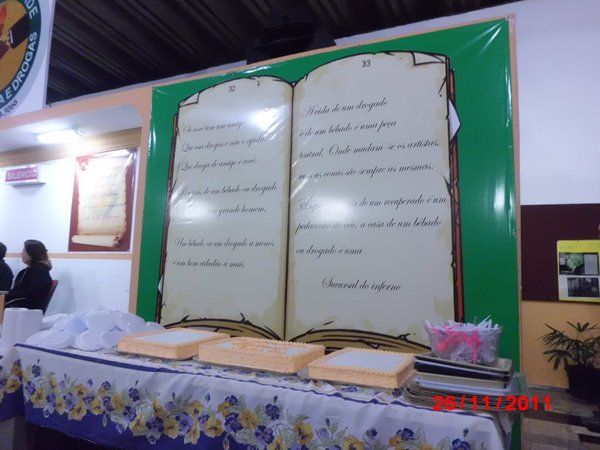 DE
A E DROGAS
SILÊNCIO
32
Se você tem um amigo
Que usa drogas e não o ajuda
Que droga de amigo é você.
Por trás de um bêbado ou drogado
um grande homem.
Um bêbado ou um drogado a menos
é um bem cidadão a mais
33
A vida de um drogado
e de um bêbado é uma peça
teatral. Onde mudam-se os artistas,
mas as cenas são sempre as mesmas.
de um recuperado é um
pedacinho do céu, a casa de um bêbado
ou drogado é uma
Sucursal do inferno
26/11/2011